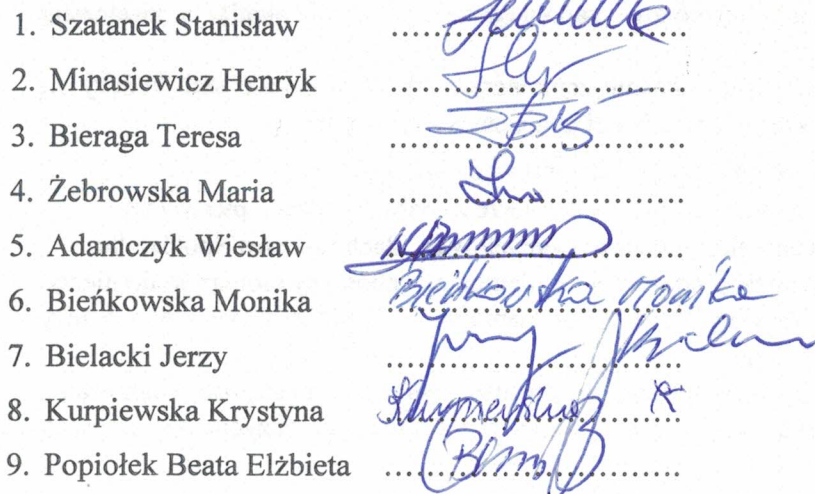 1. Szatanek Stanisław ....................
2. Minasiewicz Henryk ....................
3. Bieraga Teresa ....................
4. Żebrowska Maria ....................
5. Adamczyk Wiesław ....................
6. Bieńkowska Monika Bieńkowska Monika
7. Bielacki Jerzy Jerzy ....................
8. Kurpiewska Krystyna Kurpiewska K
9. Popiołek Beata Elżbieta ....................